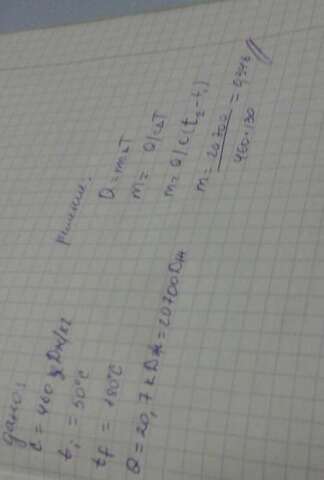 Дано:
c = 460 Дж/кг
t₁ = 50°C
tf = 180°C
Q = 20,7 кДж = 20700Дж
решение:
Q = cmΔT
m = Q/cΔT
m = Q/c(t₂-t₁)
m = 20700 / 460·130 = 0,346